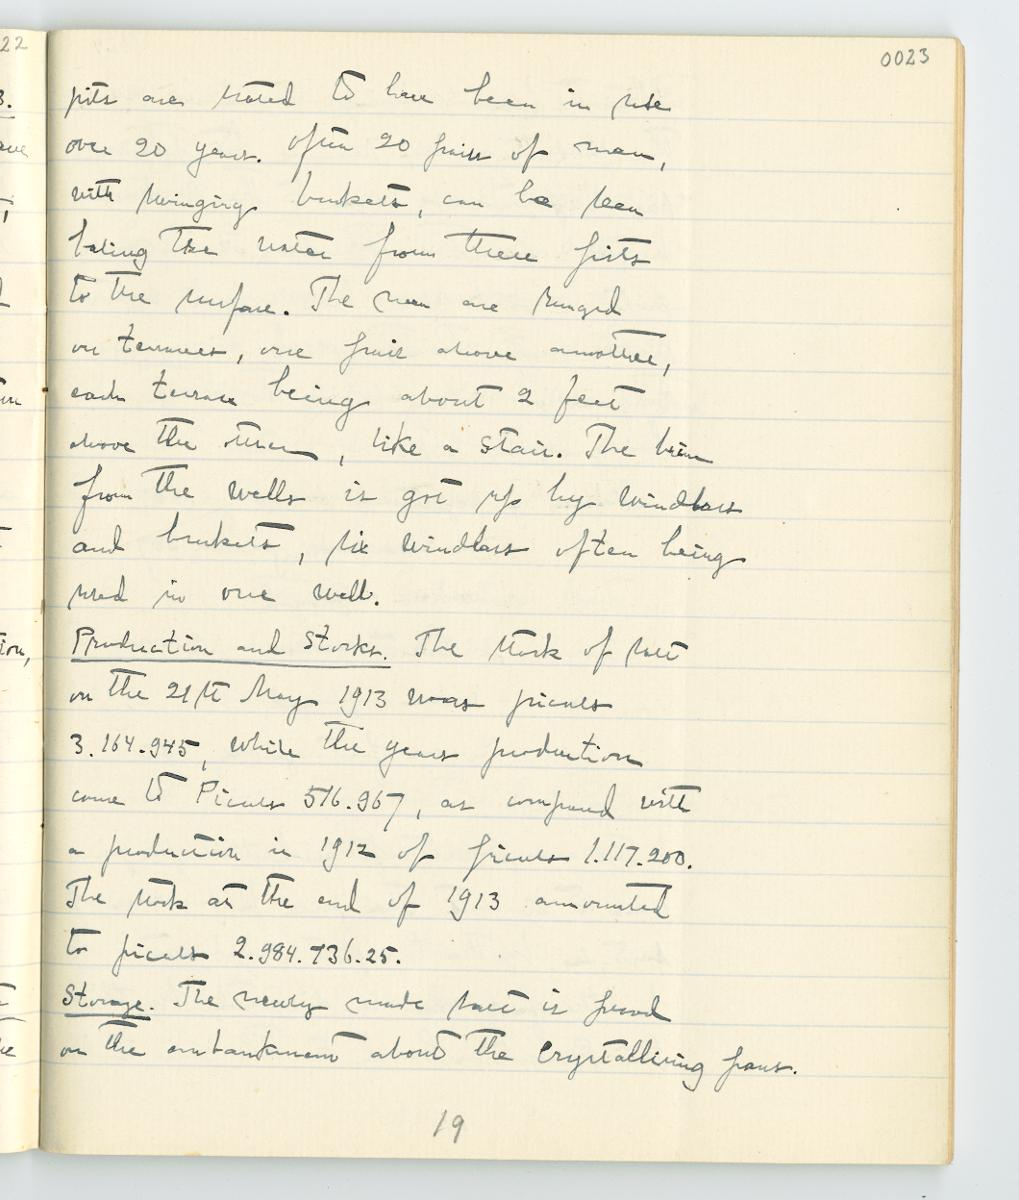 0023
pits are stated to have been in use
over 20 years. Often 20 pairs of men,
with swinging buckets, can be seen
baling the water from these pits
to the surface. The men are ranged
on terraces, one pair above another,
each terrace being about 2 feet
above the other, like a stair. The brine
from the wells is got up by windlass
and buckets, six windlass often being
used in one well.
Production and Stocks. The stock of salt
on the 21st May 1913 was piculs
3.164.945, while the years production
came to Piculs 576.967, as compared with
a production in 1912 of piculs 1.117.200.
The stock at the end of 1913 amounted
to piculs 2.984.736.25.
Storage. The newly made salt is
on the embankment about the crystallising pans.
19
22